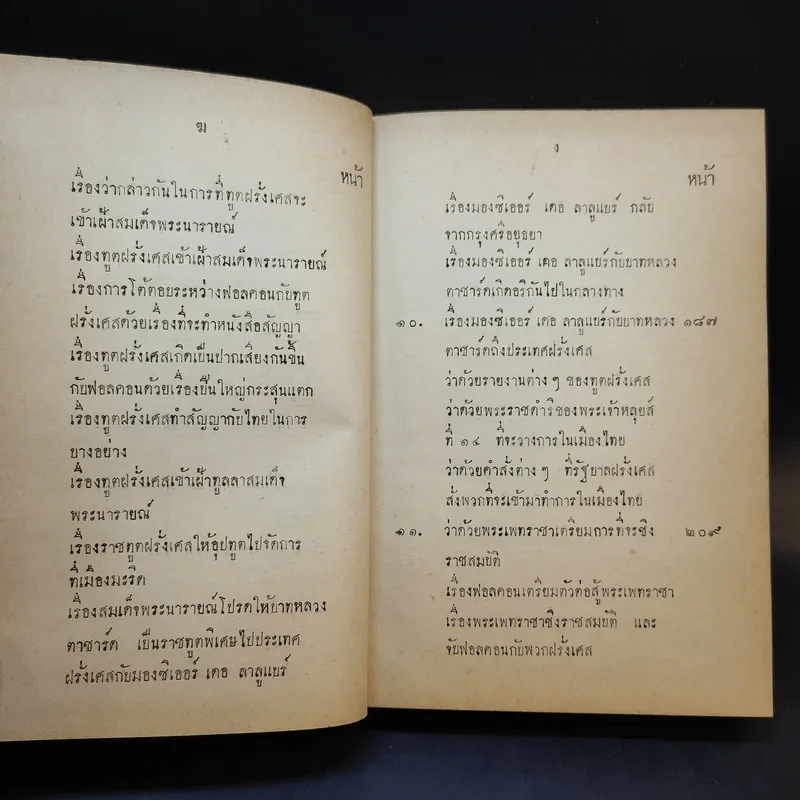 ฆ
หน้า
เรื่องว่ากล่าวกันในการที่ทูตฝรั่งเศสจะ
เข้าเฝ้าสมเด็จพระนารายณ์
เรื่องทูตฝรั่งเศสเข้าเฝ้าสมเด็จพระนารายณ์
เรื่องการโต้ตอบระหว่างฟอลคอนกับทูต
ฝรั่งเศสด้วยเรื่องที่จะทำหนังสือสัญญา
เรื่องทูตฝรั่งเศสเกิดเป็นปากเสียงกันขึ้น
กับฟอลคอนด้วยเรื่องปืนใหญ่กระสุนแตก
เรื่องทูตฝรั่งเศสทำสัญญากับไทยในการ
บางอย่าง
เรื่องทูตฝรั่งเศสเข้าเฝ้าทูลลาสมเด็จ
พระนารายณ์
เรื่องราชทูตฝรั่งเศสให้อุปทูตไปจัดการ
ที่เมืองมะริด
เรื่องสมเด็จพระนารายณ์โปรดให้บาทหลวง
ตาชาร์ด เป็นราชทูตพิเศษไปประเทศ
ฝรั่งเศสกับมองซิเออร์ เดอ ลาลูแบร์
ง
หน้า
เรื่องมองซิเออร์ เดอ ลาลูแบร์ กลับ
จากกรุงศรีอยุธยา
เรื่องมองซิเออร์ เดอ ลาลูแบร์กับบาทหลวง
ตาชาร์ดเกิดอริกันไปในกลางทาง
๑๐. เรื่องมองซิเออร์ เดอ ลาลูแบร์กับบาทหลวง ๑๘๗
ตาชาร์ดถึงประเทศฝรั่งเศส
ว่าด้วยรายงานต่าง ๆ ของทูตฝรั่งเศส
ว่าด้วยพระราชดำริของพระเจ้าหลุยส์
ที่ ๑๔ ที่จะวางการในเมืองไทย
ว่าด้วยคำสั่งต่าง ๆ ที่รัฐบาลฝรั่งเศส
สั่งพวกที่จะเข้ามาทำการในเมืองไทย
๑๑. ว่าด้วยพระเพทราชาเตรียมการที่จะชิง ๒๐๙
ราชสมบัติ
เรื่องฟอลคอนเตรียมตัวต่อสู้พระเพทราชา
เรื่องพระเพทราชาชิงราชสมบัติ และ
จับฟอลคอนกับพวกฝรั่งเศส